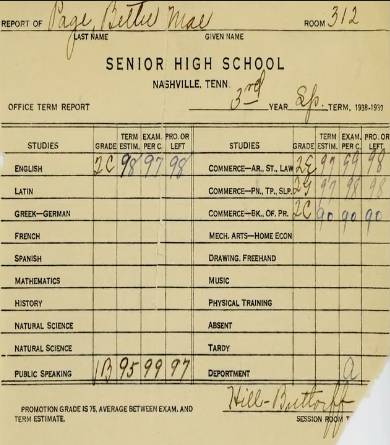 REPORT OF Page, Bettie Mae ROOM 312
LAST NAME GIVEN NAME
SENIOR HIGH SCHOOL
NASHVILLE, TENN.
OFFICE TERM REPORT 3rd YEAR Sp. TERM, 1938-1939
STUDIES GRADE TERM ESTIM. EXAM. PER C. PRO. OR LEFT STUDIES GRADE TERM ESTIM. EXAM. PER C. PRO. OR LEFT
ENGLISH 2C 98 97 98 COMMERCE—AR., ST., LAW 2E 97 99 98
LATIN COMMERCE—PN., TP., SLP. 2G 97 98
GREEK—GERMAN COMMERCE—BK., OF. PR. 2C 90 90 90
FRENCH MECH. ARTS—HOME ECON
SPANISH DRAWING, FREEHAND
MATHEMATICS MUSIC
HISTORY PHYSICAL TRAINING
NATURAL SCIENCE ABSENT
NATURAL SCIENCE TARDY
PUBLIC SPEAKING 1B 95 99 97 DEPORTMENT a
Hill-Buttorff
PROMOTION GRADE IS 75, AVERAGE BETWEEN EXAM. AND SESSION ROOM T
TERM ESTIMATE.